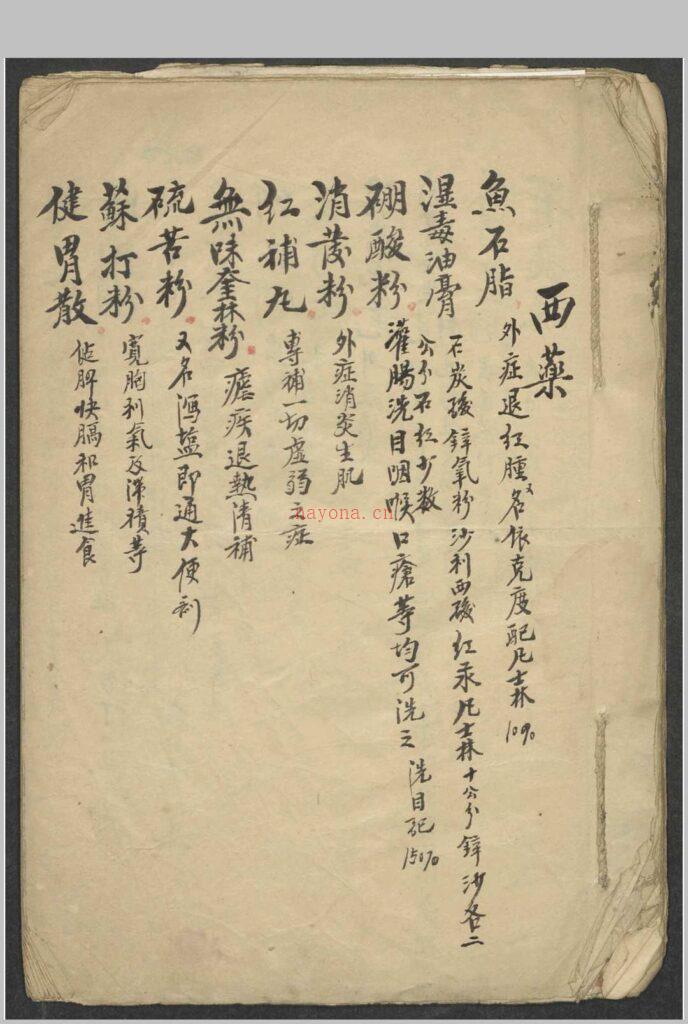 西藥
魚石脂 外症退紅腫又名依克度配凡士林10%
湿毒油膏 石炭酸鋅氧粉沙利西酸红汞凡士林十公分鋅沙各二
公分石红少数
硼酸粉 灌腸洗目咽喉口瘡等均可洗之 洗目配150%
消發粉 外症消炎生肌
红補丸 專補一切虚弱之症
無味奎林粉 瘧疾退熱清補
硫苦粉 又名瀉塩即通大便剂
蘇打粉 寬胸利氣及滞積等
健胃散 健脾快膈和胃進食
nayona.cn